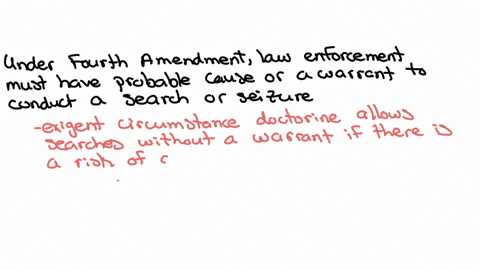 Under Fourth Amendment, law enforcement
must have probable cause or a warrant to
conduct a search or seizure
-exigent circumstance doctorine allows
searches without a warrant if there is
a risk of